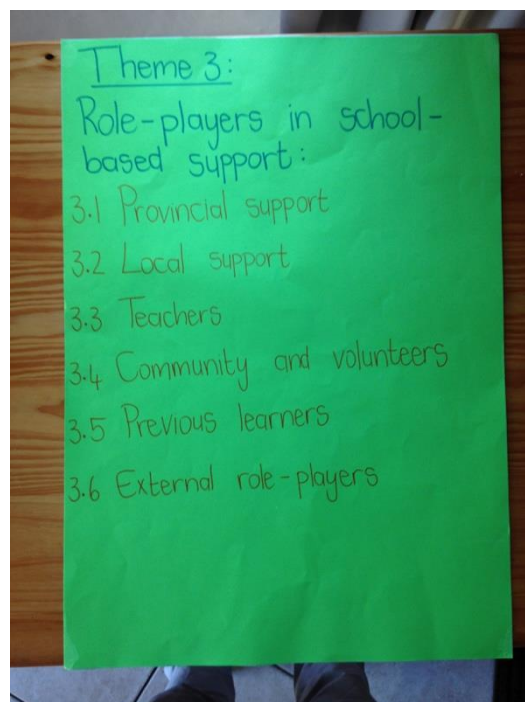 Theme 3:
Role-players in school-
based support:
3.1 Provincial support
3.2 Local support
3.3 Teachers
3.4 Community and volunteers
3.5 Previous learners
3.6 External role-players